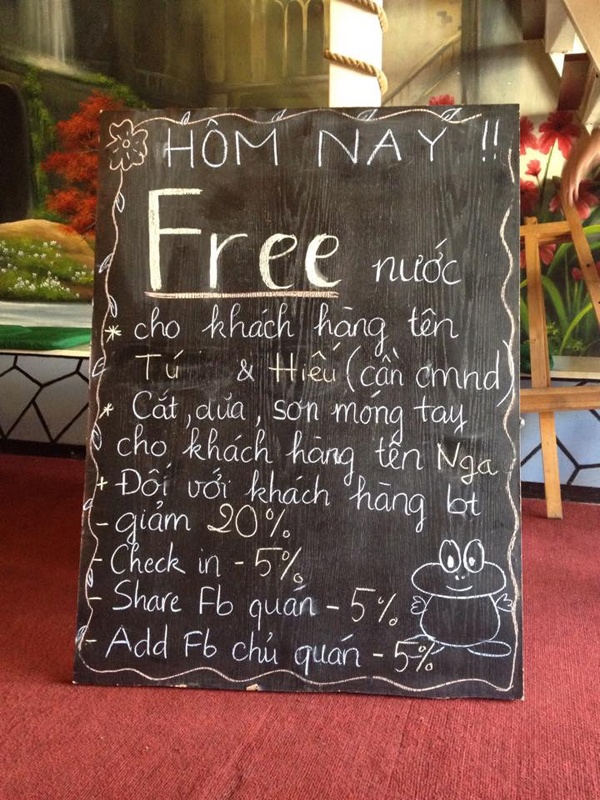 HÔM NAY !!
Free nước
* cho khách hàng tên
Tú & Hiếu (cần cmnd)
* Cắt, dũa, sơn móng tay
cho khách hàng tên Nga
+ Đối với khách hàng bt
- giảm 20%
- Check in - 5%
- Share Fb quán - 5%
- Add Fb chủ quán - 5%